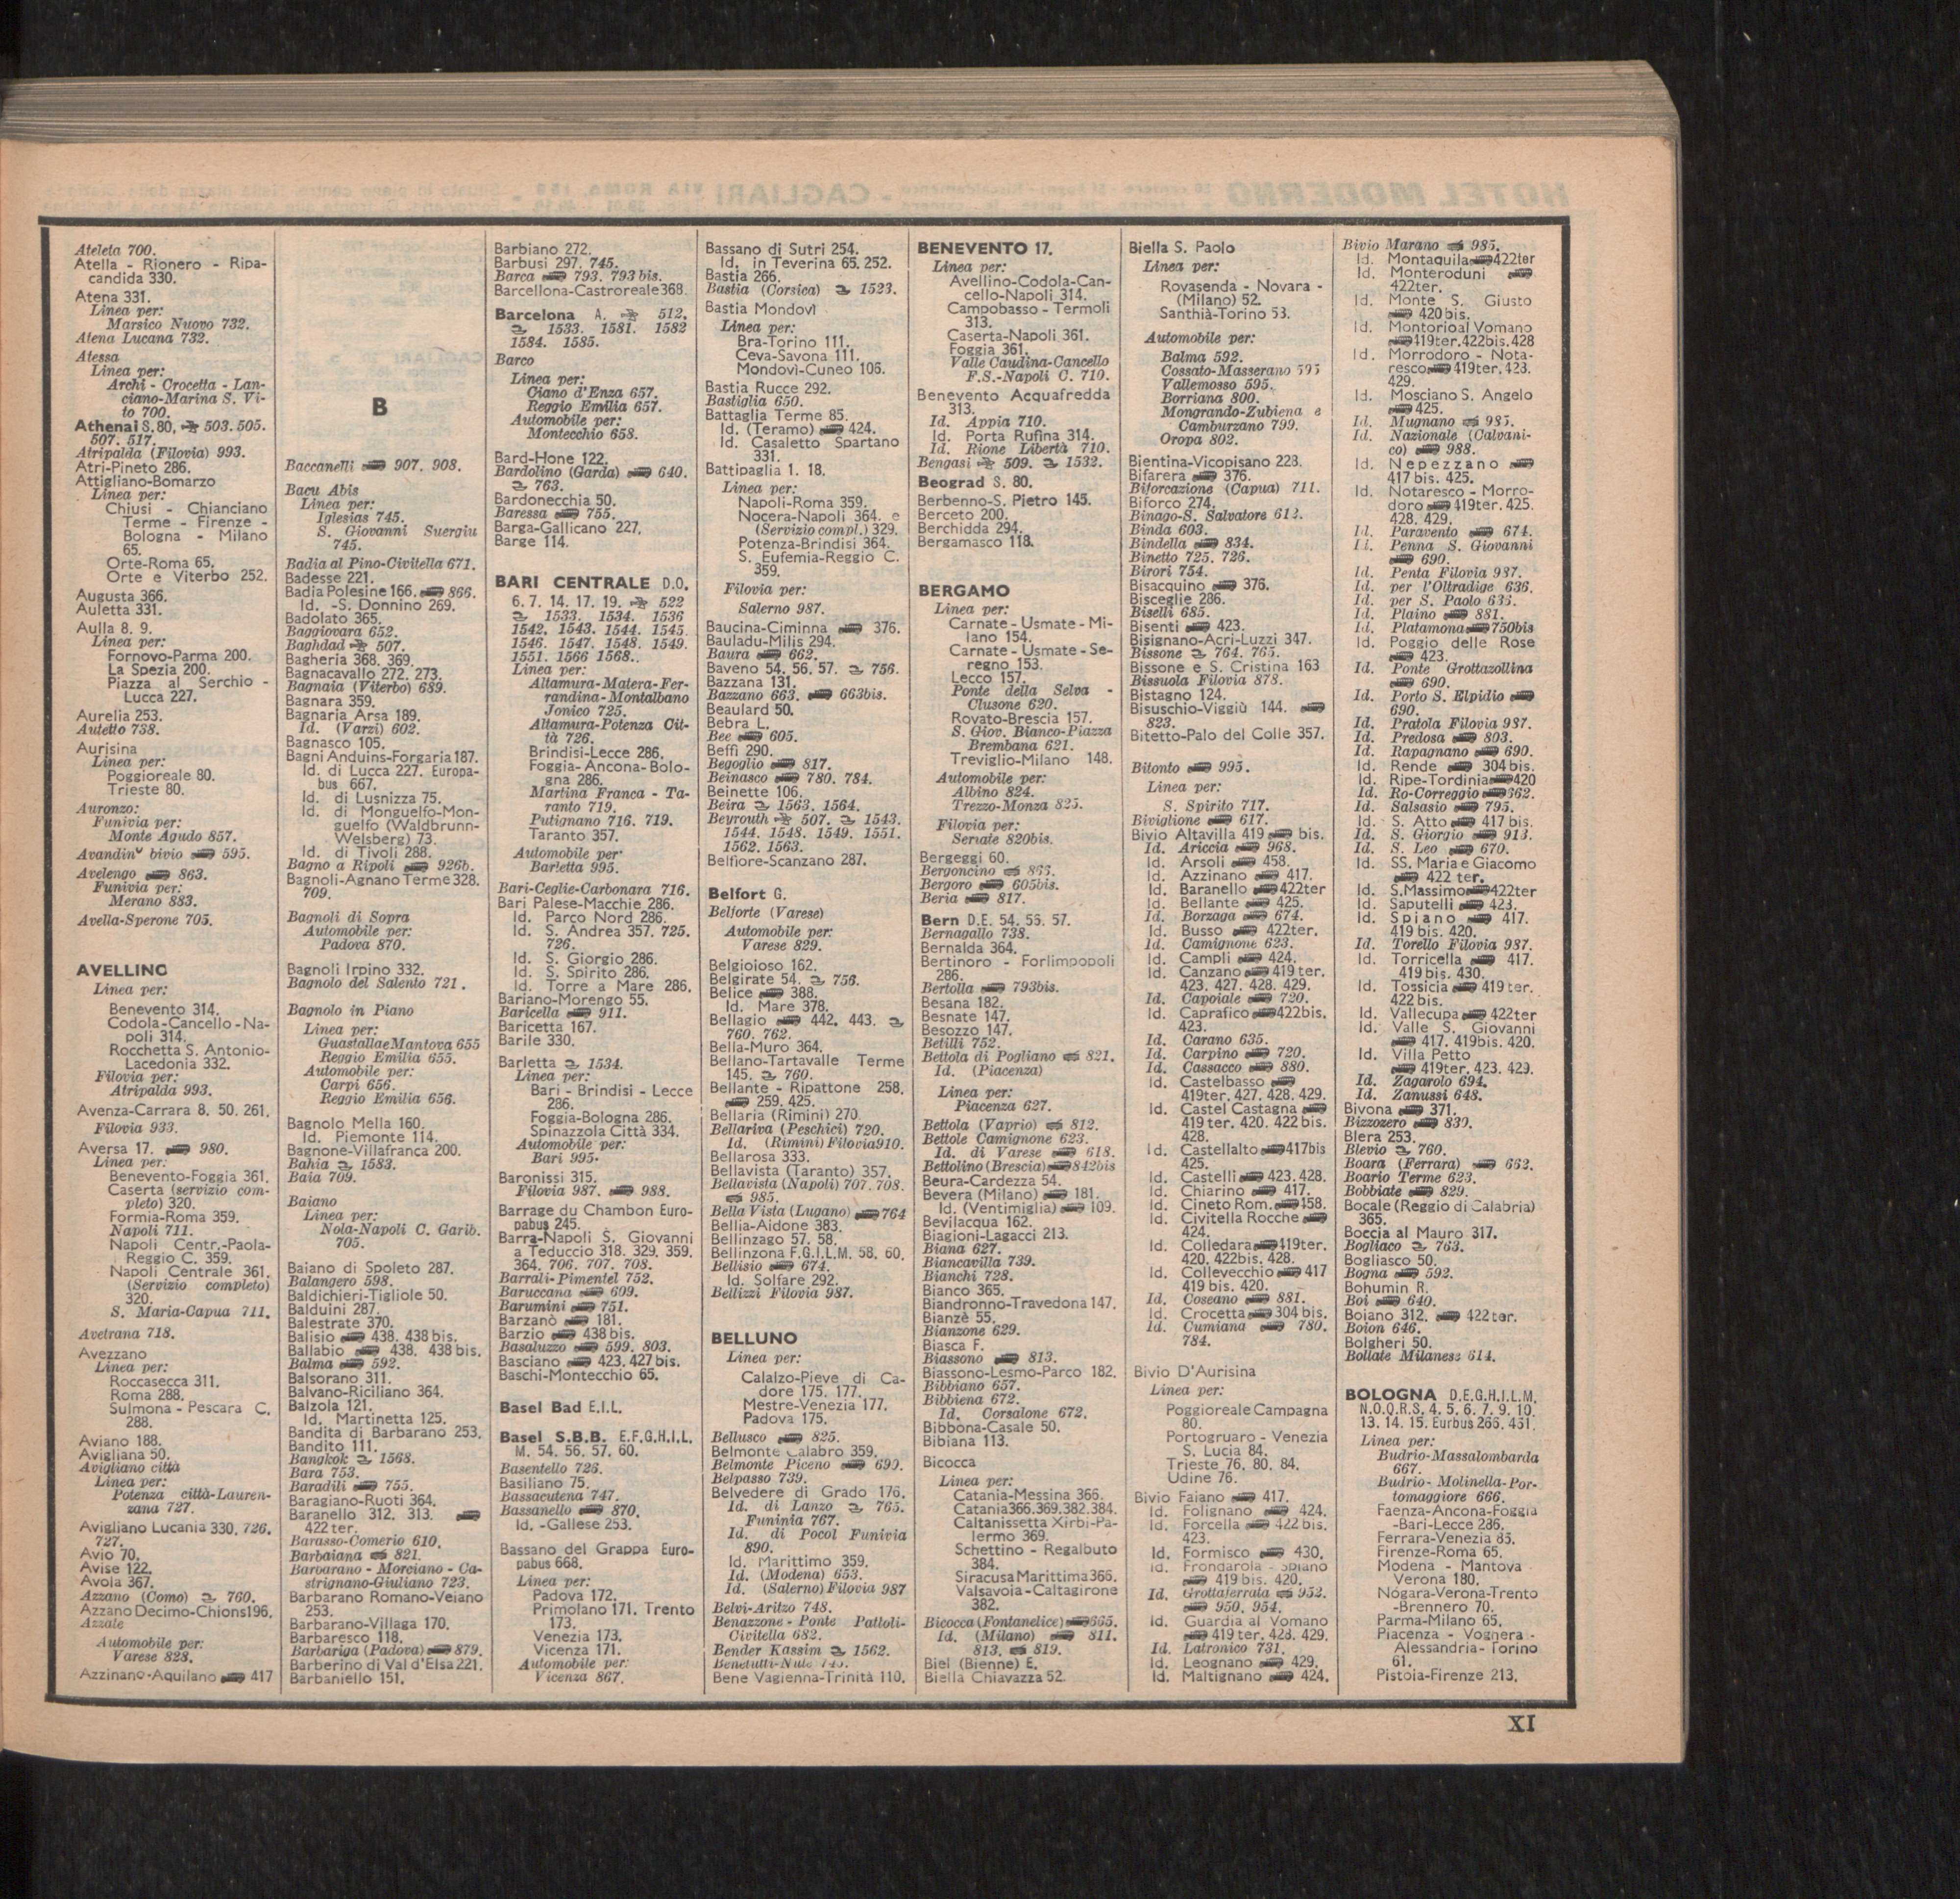 Ateleta 700.
Atella - Rionero - Ripa-
candida 330.
Atena 331.
Linea per:
Marsico Nuovo 732.
Atena Lucana 732.
Atessa
Linea per:
Archi - Crocetta - Lan-
ciano-Marina S. Vi-
to 700.
Athenai S. 80, 503. 505.
507. 517.
Atripalda (Filovia) 993.
Atri-Pineto 286.
Attigliano-Bomarzo
Linea per:
Chiusi - Chianciano
Terme - Firenze -
Bologna - Milano
65.
Orte-Roma 65.
Orte e Viterbo 252.
Augusta 366.
Auletta 331.
Aulla 8. 9.
Linea per:
Fornovo-Parma 200.
La Spezia 200.
Piazza al Serchio -
Lucca 227.
Aurelia 253.
Autetto 738.
Aurisina
Linea per:
Poggioreale 80.
Trieste 80.
Auronzo:
Funivia per:
Monte Agudo 857.
Avandino bivio 595.
Avelengo 863.
Funivia per:
Merano 883.
Avella-Sperone 705.
AVELLINO
Linea per:
Benevento 314.
Codola-Cancello-Na-
poli 314.
Rocchetta S. Antonio-
Lacedonia 332.
Filovia per:
Atripalda 993.
Avenza-Carrara 8. 50. 261.
Filovia 933.
Aversa 17. 980.
Linea per:
Benevento-Foggia 361.
Caserta (servizio com-
pleto) 320.
Formia-Roma 359.
Napoli 711.
Napoli Centr.-Paola-
Reggio C. 359.
Napoli Centrale 361.
(Servizio completo)
320.
S. Maria-Capua 711.
Avetrana 718.
Avezzano
Linea per:
Roccasecca 311.
Roma 288.
Sulmona - Pescara C.
288.
Aviano 188.
Avigliana 50.
Avigliano città
Linea per:
Potenza città-Lauren-
zana 727.
Avigliano Lucania 330. 726.
727.
Avio 70.
Avise 122.
Avola 367.
Azzano (Como) 760.
Azzano Decimo-Chions 196.
Azzate
Automobile per:
Varese 828.
Azzinano-Aquilano 417
B
Baccanelli 907. 908.
Bacu Abis
Linea per:
Iglesias 745.
S. Giovanni Suergiu
745.
Badia al Pino-Civitella 671.
Badesse 221.
Badia Polesine 166. 866.
Id. -S. Donnino 269.
Badolato 365.
Baggiovara 652.
Baghdad 507.
Bagheria 368. 369.
Bagnacavallo 272. 273.
Bagnaia (Viterbo) 689.
Bagnara 359.
Bagnaria Arsa 189.
Id. (Varzi) 602.
Bagnasco 105.
Bagni Anduins-Forgaria 187.
Id. di Lucca 227. Europa-
bus 667.
Id. di Lusnizza 75.
Id. di Monguelfo-Mon-
guelfo (Waldbrunn-
Welsberg) 73.
Id. di Tivoli 288.
Bagno a Ripoli 926b.
Bagnoli-Agnano Terme 328.
709.
Bagnoli di Sopra
Automobile per:
Padova 870.
Bagnoli Irpino 332.
Bagnolo del Salento 721.
Bagnolo in Piano
Linea per:
GuastallaeMantova 655
Reggio Emilia 655.
Automobile per:
Carpi 656.
Reggio Emilia 656.
Bagnolo Mella 160.
Id. Piemonte 114.
Bagnone-Villafranca 200.
Bahia 1583.
Baia 709.
Baiano
Linea per:
Nola-Napoli C. Garib.
705.
Baiano di Spoleto 287.
Balangero 598.
Baldichieri-Tigliole 50.
Balduini 287.
Balestrate 370.
Balisio 438. 438 bis.
Ballabio 438. 438 bis.
Balma 592.
Balsorano 311.
Balvano-Riciliano 364.
Balzola 121.
Id. Martinetta 125.
Bandita di Barbarano 253.
Bandito 111.
Bangkok 1568.
Bara 753.
Baradili 755.
Baragiano-Ruoti 364.
Baranello 312. 313.
422 ter.
Barasso-Comerio 610.
Barbaiana 821.
Barbarano - Morciano - Ca-
strignano-Giuliano 723.
Barbarano Romano-Veiano
253.
Barbarano-Villaga 170.
Barbaresco 118.
Barbariga (Padova) 879.
Barberino di Val d'Elsa 221.
Barbaniello 151.
Barbiano 272.
Barbusi 297. 745.
Barca 793. 793 bis.
Barcellona-Castroreale 368.
Barcelona A. 512.
1533. 1581. 1582
1584. 1585.
Barco
Linea per:
Ciano d'Enza 657.
Reggio Emilia 657.
Automobile per:
Montecchio 658.
Bard-Hone 122.
Bardolino (Garda) 640.
763.
Bardonecchia 50.
Baressa 755.
Barga-Gallicano 227.
Barge 114.
BARI CENTRALE D.O.
6. 7. 14. 17. 19. 522
1533. 1534. 1536
1542. 1543. 1544. 1545.
1546. 1547. 1548. 1549.
1551. 1566 1568..
Linea per:
Altamura-Matera-Fer-
randina-Montalbano
Jonico 725.
Altamura-Potenza Cit-
tà 726.
Brindisi-Lecce 286.
Foggia-Ancona-Bolo-
gna 286.
Martina Franca - Ta-
ranto 719.
Putignano 716. 719.
Taranto 357.
Automobile per
Barletta 995.
Bari-Ceglie-Carbonara 716.
Bari Palese-Macchie 286.
Id. Parco Nord 286.
Id. S. Andrea 357. 725.
726.
Id. S. Giorgio 286.
Id. S. Spirito 286.
Id. Torre a Mare 286.
Bariano-Morengo 55.
Baricella 911.
Baricetta 167.
Barile 330.
Barletta 1534.
Linea per:
Bari - Brindisi - Lecce
286.
Foggia-Bologna 286.
Spinazzola Città 334.
Automobile per:
Bari 995.
Baronissi 315.
Filovia 987. 988.
Barrage du Chambon Euro-
pabus 245.
Barra-Napoli S. Giovanni
a Teduccio 318. 329. 359.
364. 706. 707. 708.
Barrali-Pimentel 752.
Baruccana 609.
Barumini 751.
Barzanò 181.
Barzio 438 bis.
Basaluzzo 599. 803.
Basciano 423. 427 bis.
Baschi-Montecchio 65.
Basel Bad E.I.L.
Basel S.B.B. E.F.G.H.I.L.
M. 54. 56. 57. 60.
Basentello 726.
Basiliano 75.
Bassacutena 747.
Bassanello 870.
Id. -Gallese 253.
Bassano del Grappa Euro-
pabus 668.
Linea per:
Padova 172.
Primolano 171. Trento
173.
Venezia 173.
Vicenza 171.
Automobile per:
Vicenza 867.
Bassano di Sutri 254.
Id. in Teverina 65. 252.
Bastia 266.
Bastia (Corsica) 1523.
Bastia Mondovì
Linea per:
Bra-Torino 111.
Ceva-Savona 111.
Mondovì-Cuneo 106.
Bastia Rucce 292.
Bastiglia 650.
Battaglia Terme 85.
Id. (Teramo) 424.
Id. Casaletto Spartano
331.
Battipaglia 1. 18.
Linea per:
Napoli-Roma 359.
Nocera-Napoli 364. e
(Servizio compl.) 329.
Potenza-Brindisi 364.
S. Eufemia-Reggio C.
359.
Filovia per:
Salerno 987.
Baucina-Ciminna 376.
Bauladu-Milis 294.
Baura 662.
Baveno 54. 56. 57. 756.
Bazzana 131.
Bazzano 663. 663bis.
Beaulard 50.
Bebra L.
Bee 605.
Beffi 290.
Begoglio 817.
Beinasco 780. 784.
Beinette 106.
Beira 1563. 1564.
Beyrouth 507. 1543.
1544. 1548. 1549. 1551.
1562. 1563.
Belfiore-Scanzano 287.
Belfort G.
Belforte (Varese)
Automobile per:
Varese 829.
Belgioioso 162.
Belgirate 54. 756.
Belice 388.
Id. Mare 378.
Bellagio 442. 443.
760. 762.
Bella-Muro 364.
Bellano-Tartavalle Terme
145. 760.
Bellante - Ripattone 258.
259. 425.
Bellaria (Rimini) 270.
Bellariva (Peschici) 720.
Id. (Rimini) Filovia910.
Bellarosa 333.
Bellavista (Taranto) 357.
Bellavista (Napoli) 707. 708.
985.
Bella Vista (Lugano) 764
Bellia-Aidone 383.
Bellinzago 57. 58.
Bellinzona F.G.I.L.M. 58. 60.
Bellisio 674.
Id. Solfare 292.
Bellizzi Filovia 987.
BELLUNO
Linea per:
Calalzo-Pieve di Ca-
dore 175. 177.
Mestre-Venezia 177.
Padova 175.
Bellusco 825.
Belmonte Calabro 359.
Belmonte Piceno 690.
Belpasso 739.
Belvedere di Grado 176.
Id. di Lanzo 765.
Funinia 767.
Id. di Pocol Funivia
890.
Id. Marittimo 359.
Id. (Modena) 653.
Id. (Salerno) Filovia 987
Belvi-Aritzo 748.
Benazzone - Ponte Pattoli-
Civitella 682.
Bender Kassim 1562.
Benetutti-Nule 745.
Bene Vagienna-Trinità 110.
BENEVENTO 17.
Linea per:
Avellino-Codola-Can-
cello-Napoli 314.
Campobasso - Termoli
313.
Caserta-Napoli 361.
Foggia 361.
Valle Caudina-Cancello
F.S.-Napoli C. 710.
Benevento Acquafredda
313.
Id. Appia 710.
Id. Porta Rufina 314.
Id. Rione Libertà 710.
Bengasi 509. 1532.
Beograd S. 80.
Berbenno-S. Pietro 145.
Berceto 200.
Berchidda 294.
Bergamasco 118.
BERGAMO
Linea per:
Carnate - Usmate - Mi-
lano 154.
Carnate - Usmate - Se-
regno 153.
Lecco 157.
Ponte della Selva -
Clusone 620.
Rovato-Brescia 157.
S. Giov. Bianco-Piazza
Brembana 621.
Treviglio-Milano 148.
Automobile per:
Albino 824.
Trezzo-Monza 825.
Filovia per:
Seriate 820bis.
Bergeggi 60.
Bergoncino 863.
Bergoro 605bis.
Beria 817.
Bern D.E. 54. 55. 57.
Bernagallo 738.
Bernalda 364.
Bertinoro - Forlimpopoli
286.
Bertolla 793bis.
Besana 182.
Besnate 147.
Besozzo 147.
Betilli 752.
Bettola di Pogliano 821.
Id. (Piacenza)
Linea per:
Piacenza 627.
Bettola (Vaprio) 812.
Bettole Camignone 623.
Id. di Varese 618.
Bettolino (Brescia) 842bis
Beura-Cardezza 54.
Bevera (Milano) 181.
Id. (Ventimiglia) 109.
Bevilacqua 162.
Biagioni-Lagacci 213.
Biana 627.
Biancavilla 739.
Bianchi 728.
Bianco 365.
Biandronno-Travedona 147.
Bianzè 55.
Bianzone 629.
Biasca F.
Biassono 813.
Biassono-Lesmo-Parco 182.
Bibbiano 657.
Bibbiena 672.
Id. Corsalone 672.
Bibbona-Casale 50.
Bibiana 113.
Bicocca
Linea per:
Catania-Messina 366.
Catania366.369.382.384.
Caltanissetta Xirbi-Pa-
lermo 369.
Schettino - Regalbuto
384.
Siracusa Marittima 366.
Valsavoia-Caltagirone
382.
Bicocca (Fontanelice) 665.
Id. (Milano) 811.
813. 819.
Biel (Bienne) E.
Biella Chiavazza 52.
Biella S. Paolo
Linea per:
Rovasenda - Novara -
(Milano) 52.
Santhià-Torino 53.
Automobile per:
Balma 592.
Cossato-Masserano 595
Vallemosso 595.
Borriana 800.
Mongrando-Zubiena e
Camburzano 799.
Oropa 802.
Bientina-Vicopisano 223.
Bifarera 376.
Biforcazione (Capua) 711.
Biforco 274.
Binago-S. Salvatore 612.
Binda 603.
Bindella 834.
Binetto 725. 726.
Birori 754.
Bisacquino 376.
Bisceglie 286.
Biselli 685.
Bisenti 423.
Bisignano-Acri-Luzzi 347.
Bissone 764. 765.
Bissone e S. Cristina 163
Bissuola Filovia 878.
Bistagno 124.
Bisuschio-Viggiù 144.
823.
Bitetto-Palo del Colle 357.
Bitonto 995.
Linea per:
S. Spirito 717.
Biviglione 617.
Bivio Altavilla 419 bis.
Id. Ariccia 968.
Id. Arsoli 458.
Id. Azzinano 417.
Id. Baranello 422ter
Id. Bellante 425.
Id. Borzaga 674.
Id. Busso 422ter.
Id. Camignone 623.
Id. Campli 424.
Id. Canzano 419 ter.
423. 427. 428. 429.
Id. Capoiale 720.
Id. Caprafico 422bis.
423.
Id. Carano 635.
Id. Carpino 720.
Id. Cassacco 880.
Id. Castelbasso
419ter. 427. 428. 429.
Id. Castel Castagna
419 ter. 420. 422 bis.
428.
Id. Castellalto 417bis
425.
Id. Castelli 423. 428.
Id. Chiarino 417.
Id. Cineto Rom. 158.
Id. Civitella Rocche
424.
Id. Colledara 419ter.
420. 422bis. 428.
Id. Collevecchio 417
419 bis. 420.
Id. Coseano 881.
Id. Crocetta 304 bis.
Id. Cumiana 780.
784.
Bivio D'Aurisina
Linea per:
Poggioreale Campagna
80.
Portogruaro - Venezia
S. Lucia 84.
Trieste 76. 80. 84.
Udine 76.
Bivio Faiano 417.
Id. Folignano 424.
Id. Forcella 422 bis.
423.
Id. Formisco 430.
Id. Frondarola - Spiano
419 bis. 420.
Id. Grottaferrata 952.
950. 954.
Id. Guardia al Vomano
419 ter. 428. 429.
Id. Latronico 731.
Id. Leognano 429.
Id. Maltignano 424.
Bivio Marano 985.
Id. Montaquila 422ter
Id. Monteroduni
422ter.
Id. Monte S. Giusto
420 bis.
Id. Montorioal Vomano
419ter.422bis.428
Id. Morrodoro - Nota-
resco 419ter. 423.
429.
Id. Mosciano S. Angelo
425.
Id. Mugnano 985.
Id. Nazionale (Calvani-
co) 988.
Id. Nepezzano
417 bis. 425.
Id. Notaresco - Morro-
doro 419ter. 425.
428. 429.
Id. Paravento 674.
Id. Penna S. Giovanni
690.
Id. Penta Filovia 987.
Id. per l'Oltradige 636.
Id. per S. Paolo 633.
Id. Plaino 881.
Id. Platamona 750bis
Id. Poggio delle Rose
423.
Id. Ponte Grottazollina
690.
Id. Porto S. Elpidio
690.
Id. Pratola Filovia 987.
Id. Predosa 803.
Id. Rapagnano 690.
Id. Rende 304 bis.
Id. Ripe-Tordinia 420
Id. Ro-Correggio 662.
Id. Salsasio 795.
Id. S. Atto 417 bis.
Id. S. Giorgio 913.
Id. S. Leo 670.
Id. SS. Maria e Giacomo
422 ter.
Id. S.Massimo 422ter
Id. Saputelli 423.
Id. Spiano 417.
419 bis. 420.
Id. Torello Filovia 987.
Id. Torricella 417.
419 bis. 430.
Id. Tossicia 419 ter.
422 bis.
Id. Vallecupa 422ter
Id. Valle S. Giovanni
417. 419bis. 420.
Id. Villa Petto
419ter. 423. 429.
Id. Zagarolo 694.
Id. Zanussi 648.
Bivona 371.
Bizzozero 830.
Blera 253.
Blevio 760.
Boara (Ferrara) 662.
Boario Terme 623.
Bobbiate 829.
Bocale (Reggio di Calabria)
365.
Boccia al Mauro 317.
Bogliaco 763.
Bogliasco 50.
Bogna 592.
Bohumin R.
Boi 640.
Boiano 312. 422 ter.
Boion 646.
Bolgheri 50.
Bollate Milanese 614.
BOLOGNA D.E.G.H.I.L.M.
N.O.Q.R.S. 4. 5. 6. 7. 9. 10.
13. 14. 15. Eurbus 266. 451.
Linea per:
Budrio-Massalombarda
667.
Budrio- Molinella-Por-
tomaggiore 666.
Faenza-Ancona-Foggia
-Bari-Lecce 286.
Ferrara-Venezia 85.
Firenze-Roma 65.
Modena - Mantova -
Verona 180.
Nogara-Verona-Trento
-Brennero 70.
Parma-Milano 65.
Piacenza - Voghera -
Alessandria- Torino
61.
Pistoia-Firenze 213.
XI